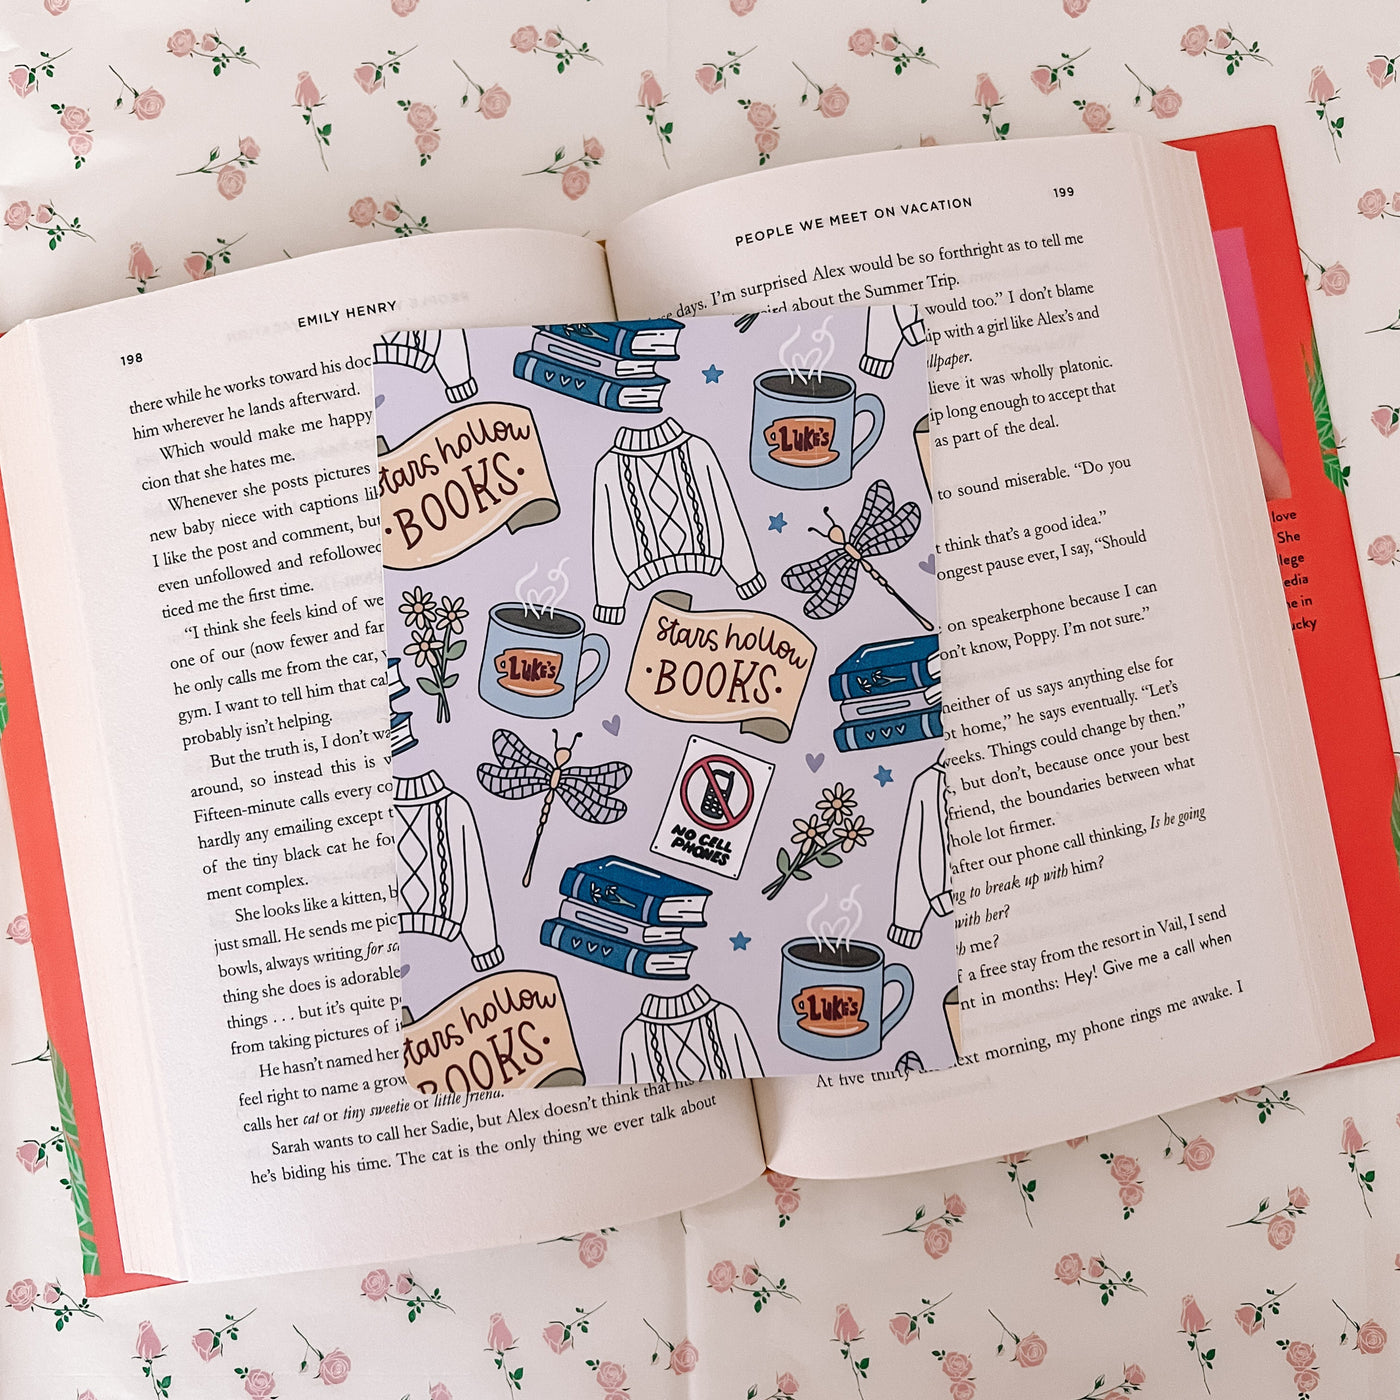 EMILY HENRY
198
there while he works toward his doc
him wherever he lands afterward.
Which would make me happy
cion that she hates me.
Whenever she posts pictures
new baby niece with captions li
I like the post and comment, but
even unfollowed and refollowed
ticed me the first time.
“I think she feels kind of we
one of our (now fewer and far
he only calls me from the car,
gym. I want to tell him that cal
probably isn’t helping.
But the truth is, I don’t wa
around, so instead this is w
Fifteen-minute calls every co
hardly any emailing except t
of the tiny black cat he fou
ment complex.
She looks like a kitten, b
just small. He sends me pic
bowls, always writing for sc
thing she does is adorable
things . . . but it’s quite p
from taking pictures of i
He hasn’t named her
feel right to name a grow
calls her cat or tiny sweetie or little friend.
Sarah wants to call her Sadie, but Alex doesn’t think that his
he’s biding his time. The cat is the only thing we ever talk about
PEOPLE WE MEET ON VACATION
199
days. I’m surprised Alex would be so forthright as to tell me
about the Summer Trip.
would too.” I don’t blame
ip with a girl like Alex’s and
llpaper.
lieve it was wholly platonic.
ip long enough to accept that
as part of the deal.
to sound miserable. “Do you
think that’s a good idea.”
ongest pause ever, I say, “Should
on speakerphone because I can
on’t know, Poppy. I’m not sure.”
neither of us says anything else for
ot home,” he says eventually. “Let’s
weeks. Things could change by then.”
, but don’t, because once your best
friend, the boundaries between what
hole lot firmer.
after our phone call thinking, Is he going
ng to break up with him?
with her?
me?
f a free stay from the resort in Vail, I send
nt in months: Hey! Give me a call when
At five thirty the next morning, my phone rings me awake. I
stars hollow
BOOKS
LUKE'S
LUKE'S
stars hollow
BOOKS
NO CELL
PHONES
stars hollow
BOOKS
LUKE'S
love
She
lege
edia
e in
ucky